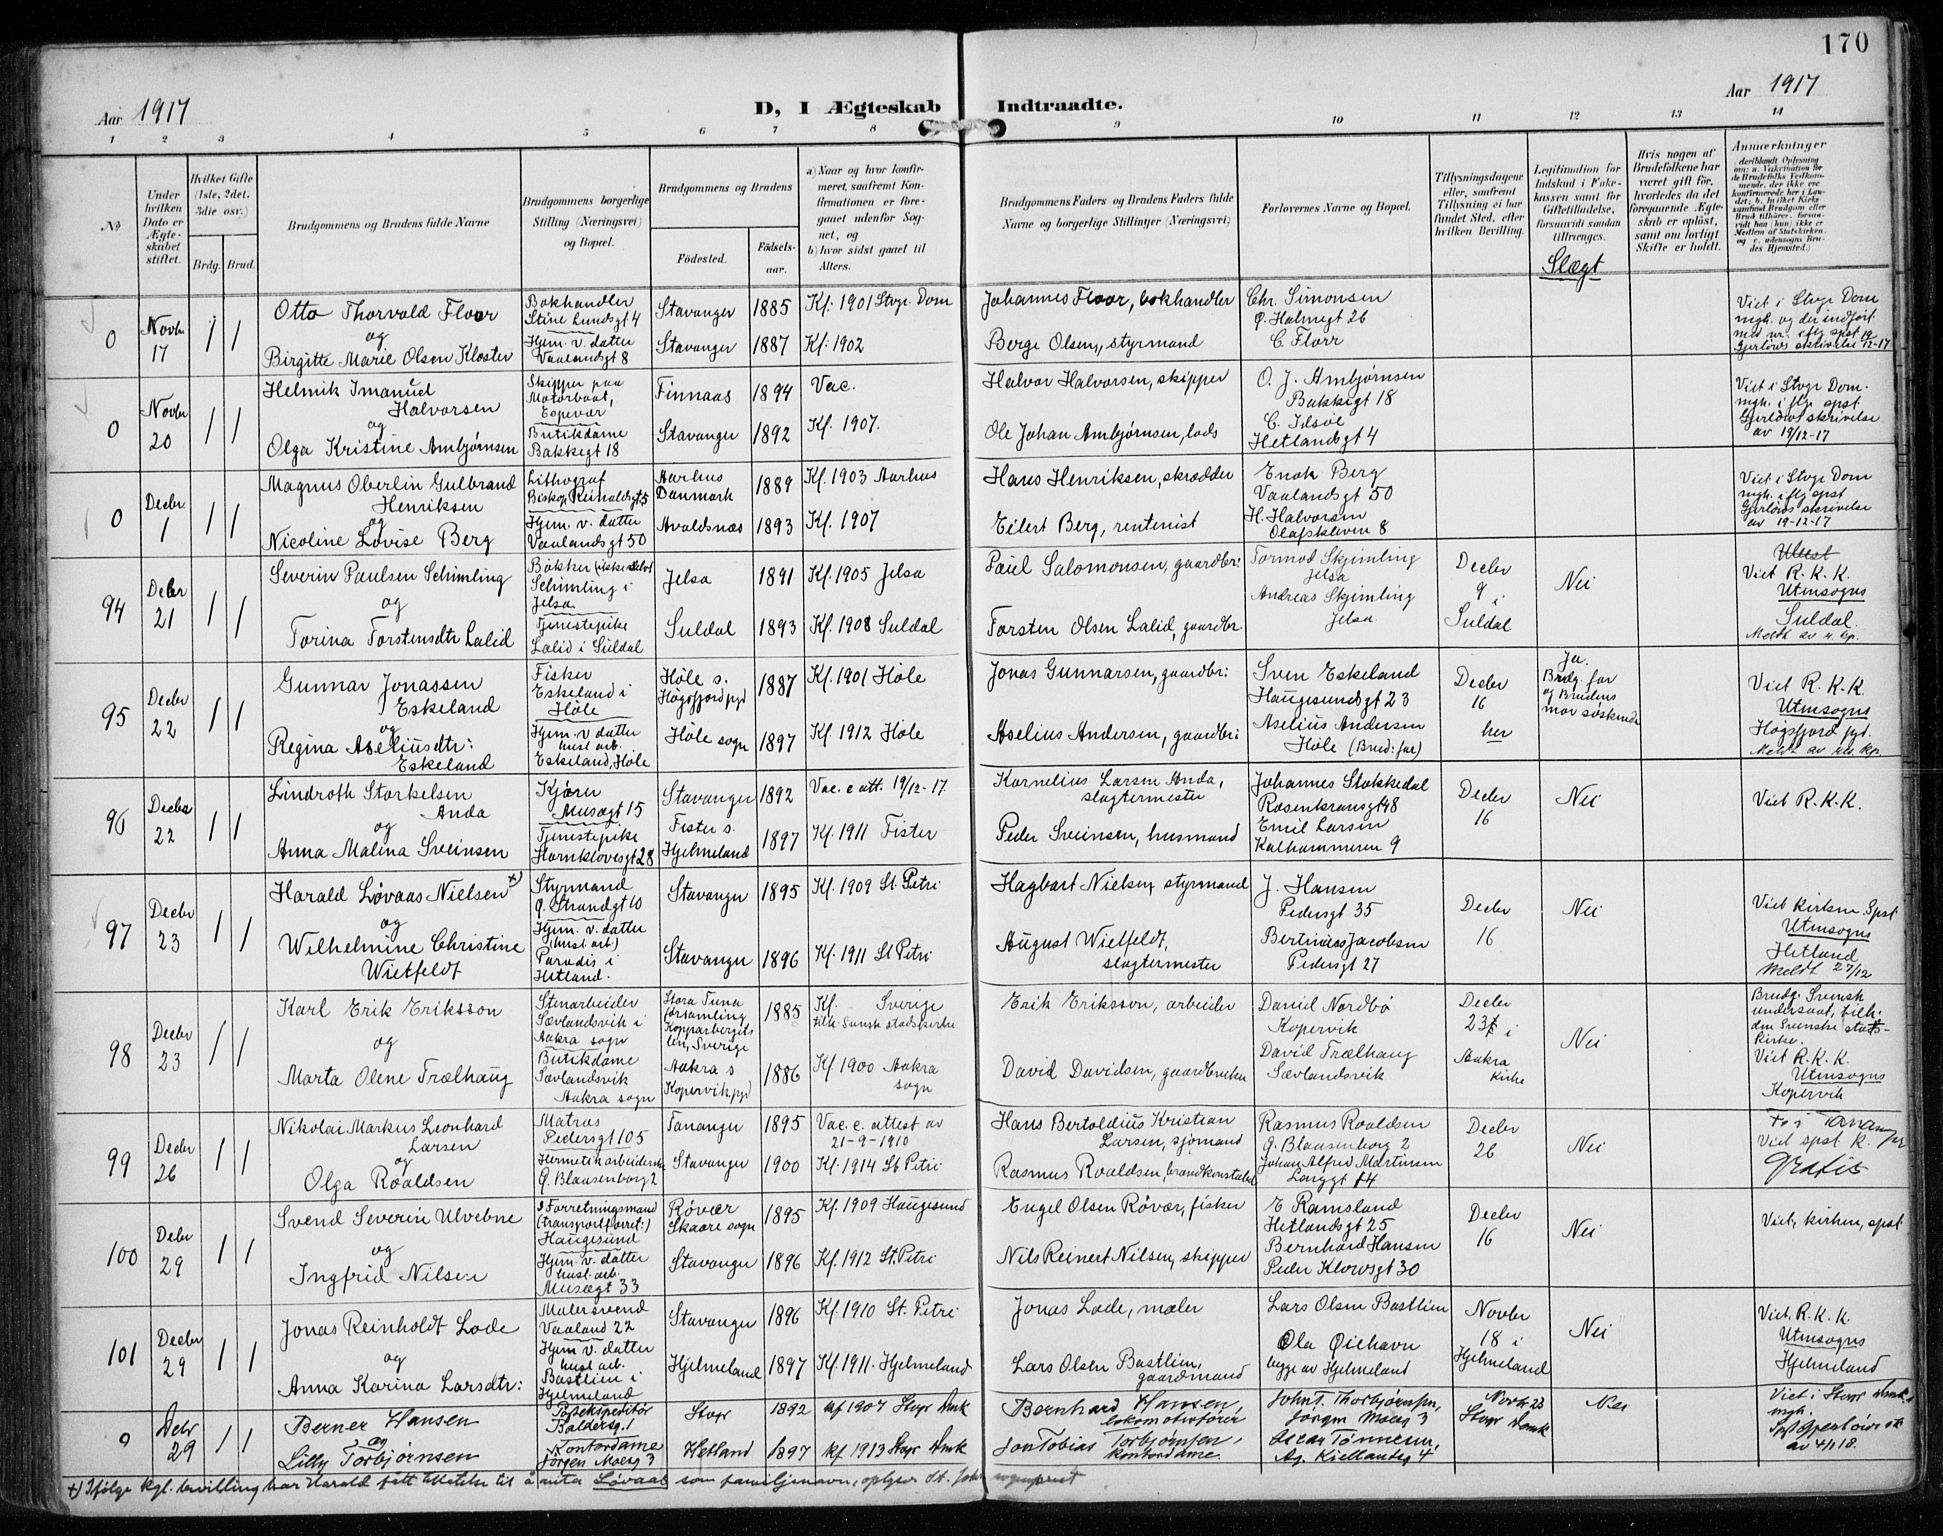 170
Aar 1917
D, I Ægteskab Indtraadte.
Aar 1917
1 2 3 4 5 6 7 8 9 10 11 12 13 14
No
Under hvilken Dato er Ægteskabet stiftet.
Hvilket Gifte (1ste, 2det, 3die osv.)
Brdg. Brud.
Brudgommens og Brudens fulde Navne
Brudgommens borgerlige Stilling (Næringsvei) og Bopæl.
Brudgommens og Brudens
Fødested.
Fødselsaar.
a) Naar og hvor konfirmeret, saafremt Konfirmationen er foregaaet udenfor Sognet, og
b) hvor sidst gaaet til Alters.
Brudgommens Faders og Brudens Faders fulde Navne og borgerlige Stillinger (Næringsvei)
Forlovernes Navne og Bopæl.
Tillysningsdagene eller, saafremt Tillysning ei har fundet Sted, efter hvilken Bevilling.
Legitimation for Indskud i Enkekassen samt for Giftetilladelse, forsaavidt saadan tiltrænges.
Slægt
Hvis nogen af Brudefolkene har været gift før, hvorledes da det foregaaende Ægteskab er opløst, samt om lovligt Skifte er holdt.
Anmerkninger
0 Novbr 17 1 1
Otto Thorvald Floor
og
Birgitte Marie Olsen Kloster
Bokhandler
Stine Lundsgt 4
Hjem. v. datter
Vaalandsgt 8
Stavanger 1885 Kf: 1901 Stvgr Dom
Stavanger 1887 Kf: 1902
Johannes Floor, bokhandler
Berge Olsen, styrmand
Chr. Simonsen
Ø. Holmegt 26
C. Floor
Viet i Stvgr Dom
mgh. og der indført
0 Novbr 20 1 1
Helmik Imanuel
Halvorsen
og
Olga Kristine Ambjørnsen
Skipper paa
Motorbaat,
Espevær
Butikdame
Bakkegt 18
Finnaas 1894 Vac.
Stavanger 1892 Kf. 1907.
Halvor Halvorsen, skipper
Ole Johan Ambjørnsen, lods
O. J. Ambjørnsen
Bakkegt 18
Hetlandsgt 4
Viet i Stvgr Dom.
mgh. i flg. spst.
av 19/12-17
0 Decbr 1 1 1
Magnus Oberlin Gulbrand
Henriksen
og
Nicoline Lovise Berg
Lithograf
Biskop Reinaldsgt 5
Hjem. v. datter
Vaalandsgt 50
Aarhus
Danmark 1889 Kf. 1903 Aarhus
Avaldsnæs 1893 Kf. 1907
Hans Henriksen, skrædder
Eilert Berg, rentenist
Enok Berg
Vaalandsgt 50
H. Halvorsen
Olafskleven 8
Viet i Stvgr Dom
mgh. i flg spst
av 19-12-17
94 Decbr 21 1 1
Severin Paulsen Schimling
og
Torina Torstensdtr Lalid
Schimling i
Jelsa
Tjenestepike
Lalid i Suldal
Jelsa 1891 Kf. 1905 Jelsa
Suldal 1893 Kf. 1908 Suldal
Paul Salomonsen, gaardbr:
Torsten Olsen Lalid, gaardbr
Tormod Skjimling
Jelsa
Andreas Skjimling
Jelsa
Decbr
9 i
Suldal
Nei
Viet R. K. K.
Utensogns
Suldal.
95 Decbr 22 1 1
Gunnar Jonassen
Eskeland
og
Regina Aseliusdtr:
Eskeland
Fisker
Eskeland i
Høle
Hjem. v datter
hust arb.
Eskeland, Høle
Høle s.
Høgsfjord pgd 1887 Kf. 1901 Høle
Høle sogn 1897 Kf. 1912 Høle
Jonas Gunnarsen, gaardbr:
Aselius Andersen, gaardbr:
Sven Eskeland
Haugesundsgt 23
Aselius Andersen
Høle (Brud: far)
Decbr
16
her
Ja.
Brdg. far
og Brudens
mor søskende
Viet R. K. K.
Utensogns
Høgsfjord pgd.
96 Decbr 22 1 1
Lindroth Storkelsen
Anda
og
Anna Malina Sveinsen
Kjører
Musægt 15
Tjenestepike
Hornklovesgt 28
Stavanger 1892 Vac. c att. 19/12-17
Fister s.
Hjelmeland 1897 Kf. 1911 Fister
Kornelius Larsen Anda,
slagtermester
Peder Sveinsen, husmand
Johannes Stokkedal
Rosenkransgt 48
Emil Larsen
Kalhammeren 9
Decbr
16
Nei
Viet R. K. K.
97 Decbr 23 1 1
Harald Løvaas Nielsen x)
og
Wilhelmine Christine
Wietfeldt
Styrmand
Ø. Strandgt 10
Hjem. v. datter
(hust arb)
Paradis i
Hetland.
Stavanger 1895 Kf. 1909 St. Petri
Stavanger 1896 Kf. 1911 St Petri
Hagbart Nielsen, styrmand
August Wietfeldt,
slagtermester
J. Hansen
Pedersgt 35
Bertinius Jacobsen
Pedersgt 27
Decbr
16
Nei
Viet kirken. Spst
Utensogns
Hetland
Meldt 27/12
98 Decbr 23 1 1
Karl Erik Eriksson
og
Marta Olene Trælhaug
Stenarbeider
Sævlandsvik i
Aakra sogn
Butikdame
Sævlandsvik
Aakra sogn
Stora Tuna
församling
Kopparbergets
län, Sverige 1885 Kf. Sverige
Aakra s
Kopervik pgd 1886 Kf 1900 Aakra
sogn
Erik Eriksson, arbeider
David Davidsen, gaardbruker
Daniel Nordbø
Kopervik
David Trælhaug
Sævlandsvik
Decbr
23 i
Aakra
kirke
Nei
Brudg. Svensk
undersaat, tilh.
den Svenske stats-
kirke.
Viet R. K. K.
Utensogns
Kopervik
99 Decbr 26 1 1
Nikolai Markus Leonhard
Larsen
og
Olga Roaldsen
Matros
Pedersgt 105
Hermetikarbeiderske
Ø. Blaasenborg 2
Tananger 1895 Vac. c. attest av
21-9-1910
Stavanger 1900 Kf. 1914 St Petri
Hans Bertoldius Kristian
Larsen, sjømand
Rasmus Roaldsen, brandkonstabel
Rasmus Roaldsen
Ø. Blaasenborg 2
Johan Alfred Martinsen
Langgt 84
Decbr
26
Nei
Viet spst k.
Gratis
100 Decbr 29 1 1
Svend Severin Ulvebne
og
Ingfrid Nilsen
Forretningsmand
(transportforret:)
Haugesund
Hjem. v. datter
hust. arb.
Musægt 33
Røvær
Skaare sogn 1895 Kf. 1909 Haugesund
Stavanger 1896 Kf. 1912 St. Petri
Engel Olsen Røvær, fisker
Nils Reinert Nilsen, skipper
E Ramsland
Hetlandsgt 25
Bernhard Hansen
Peder Klowsgt 30
Decbr
16
Nei
Viet, kirken, spst
101 Decbr 29 1 1
Jonas Reinholdt Lode
og
Anna Karina Larsdtr:
Malersvend
Vaaland 22
Hjem v. datter
hust arb.
Bastlien i
Hjelmeland
Stavanger 1896 Kf. 1910 St. Petri
Hjelmeland 1897 Kf. 1911. Hjelmeland
Jonas Lode, maler
Lars Olsen Bastlien,
gaardmand
Lars Olsen Bastlien
Ola Øiehavn
begge av Hjelmeland
Novbr
18 i
Hjelmeland
Nei
Viet. R. K. K.
Utensogns
Hjelmeland
Debr 29 1 1
Berner Hansen
og
Lilly Torbjørnsen
Baldersg. 1
Kontordame
Jørgen Moesg 3
Stvgr 1892 kf 1907 Stvgr Dmk
Hetland 1897 kf 1913 Stvgr Dmk
Bernhard Hansen,
lokomotivfører
Jon Tobias Torbjørnsen,
John T. Thorbjørnsen,
Jørgen Moesg 3
Oscar Tønnesen,
Ag. Kiellandsg 4
Novbr 23
Stvgr Domk
Nei
Viet i Stvgr Domk.
mgh.
av 4/1 18.
x) Ifølge kgl. bevilling har Harald fått tillatelse til å nita Løvaas som familjenavn, oplyser St. Joh. sogneprest